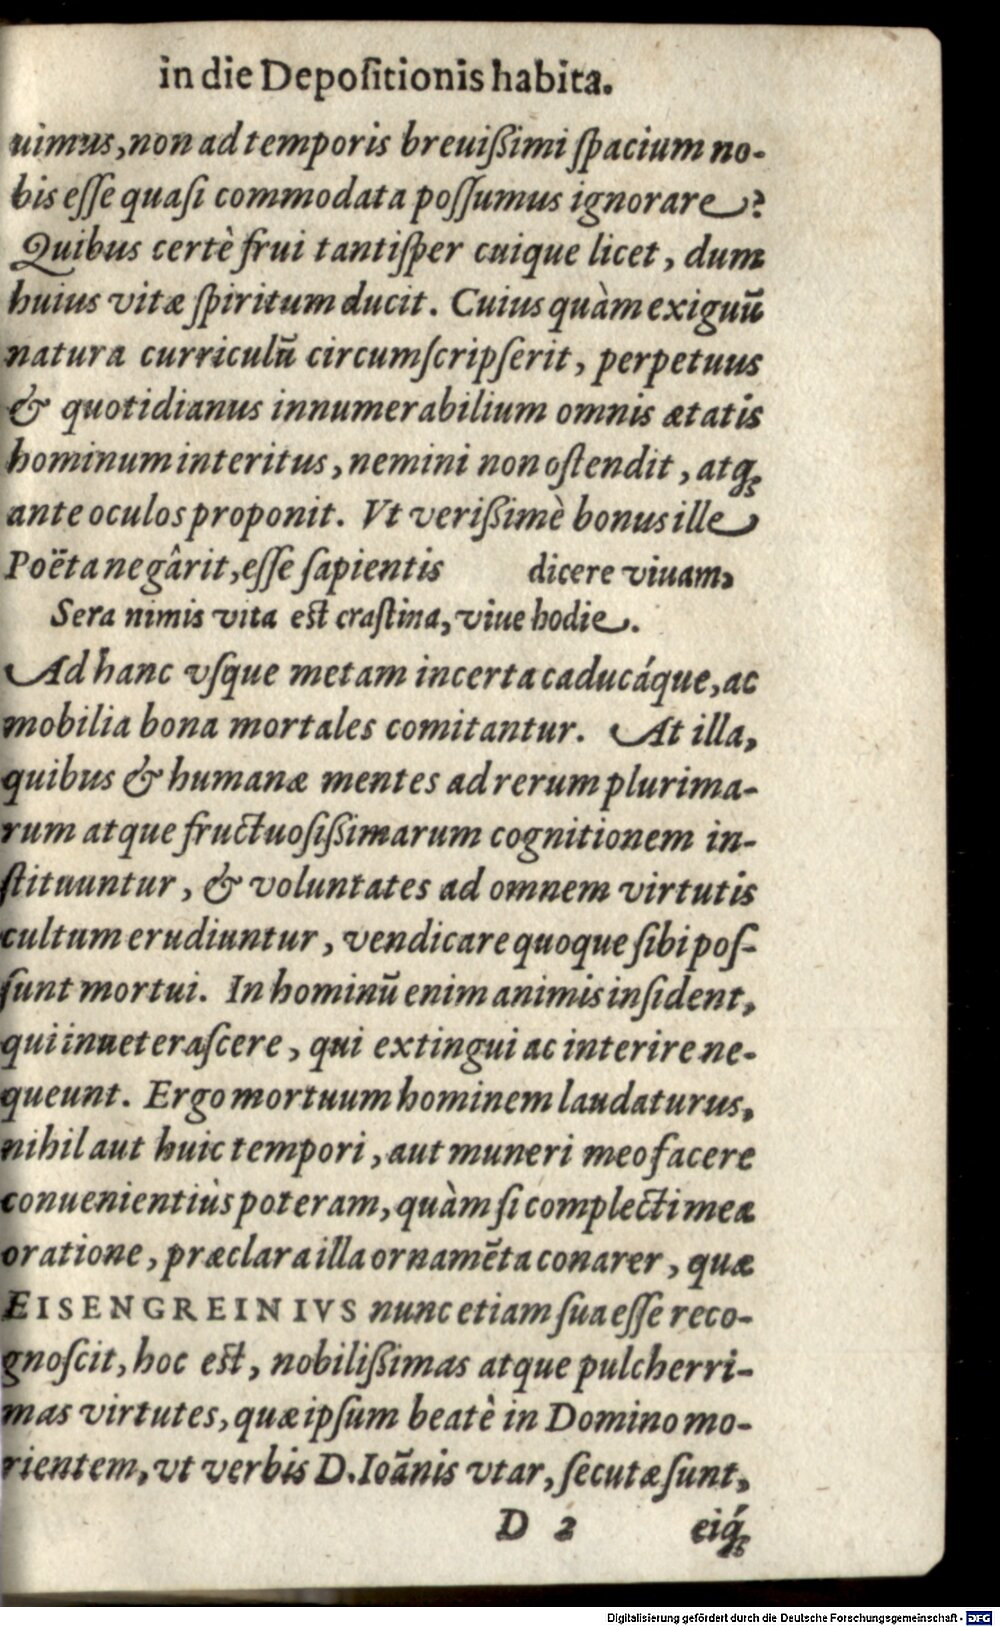 in die Depoſitionis habita.
uimus, non ad temporis breuißimi ſpacium no-
bis eſſe quaſi commodata poſſumus ignorare?
Quibus certè frui tantiſper cuique licet, dum
huius vitæ ſpiritum ducit. Cuius quàm exiguũ
natura curriculũ circumſcripſerit, perpetuus
& quotidianus innumerabilium omnis ætatis
hominum interitus, nemini non oſtendit, atq;
ante oculos proponit. Vt verißimè bonus ille
Poëta negârit, eſſe ſapientis dicere viuam,
Sera nimis vita est craſtina, viue hodie.
Ad hanc vſque metam incerta caducáque, ac
mobilia bona mortales comitantur. At illa,
quibus & humanæ mentes ad rerum plurima-
rum atque fructuoſißimarum cognitionem in-
ſtituuntur, & voluntates ad omnem virtutis
cultum erudiuntur, vendicare quoque ſibi poſ-
ſunt mortui. In hominũ enim animis inſident,
qui inueteraſcere, qui extingui ac interire ne-
queunt. Ergo mortuum hominem laudaturus,
nihil aut huic tempori, aut muneri meo facere
conuenientiùs poteram, quàm ſi complecti mea
oratione, præclara illa ornamẽta conarer, quæ
EISENGREINIVS nunc etiam ſua eſſe reco-
gnoſcit, hoc est, nobilißimas atque pulcherri-
mas virtutes, quæ ipſum beatè in Domino mo-
rientem, vt verbis D. Ioãnis vtar, ſecutæ ſunt,
D 2 eiq́;
Digitalisierung gefördert durch die Deutsche Forschungsgemeinschaft - DFG